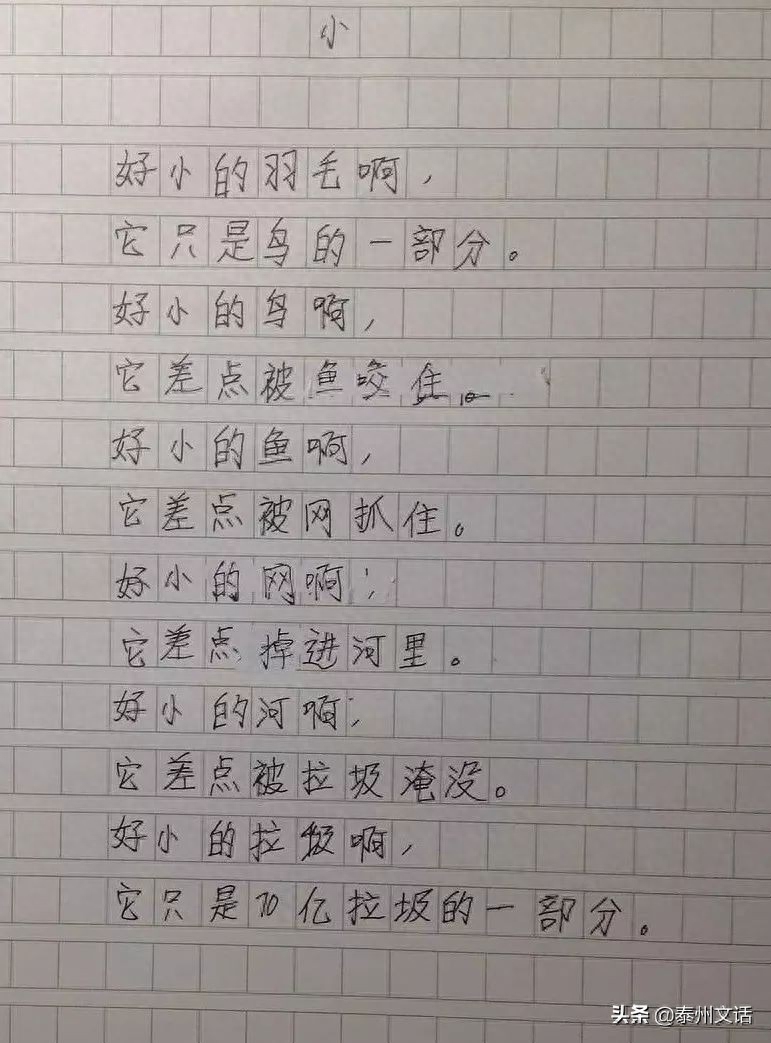 小
好小的羽毛啊，
它只是鸟的一部分。
好小的鸟啊，
它差点被鱼咬住。
好小的鱼啊，
它差点被网抓住。
好小的网啊，
它差点掉进河里。
好小的河啊，
它差点被垃圾淹没。
好小的垃圾啊，
它只是70亿垃圾的一部分。
头条 @泰州文话